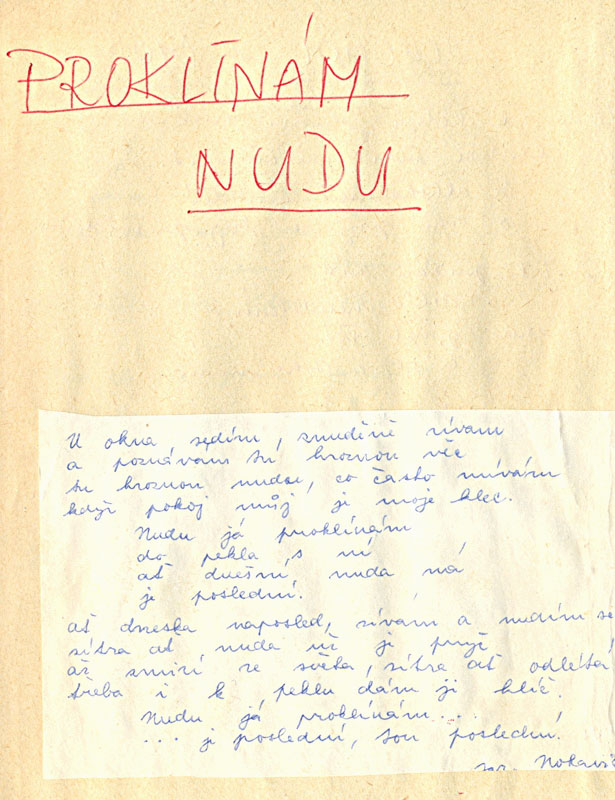 PROKLÍNÁM
NUDU
U okna sedím, znuděně zívám
a poznávám tu hroznou věc
tu hroznou nudu, co často mívám
když pokoj můj je moje klec.
Nudu já proklínám
do pekla s ní
ať dnešní nuda má
je poslední.
ať dneska naposled, zívám a nudím se
zítra ať nuda už je pryč
ať zmizí ze světa, zítra ať odlétá
třeba i k peklu dám ji klíč.
Nudu já proklínám...
... je poslední, tou poslední.